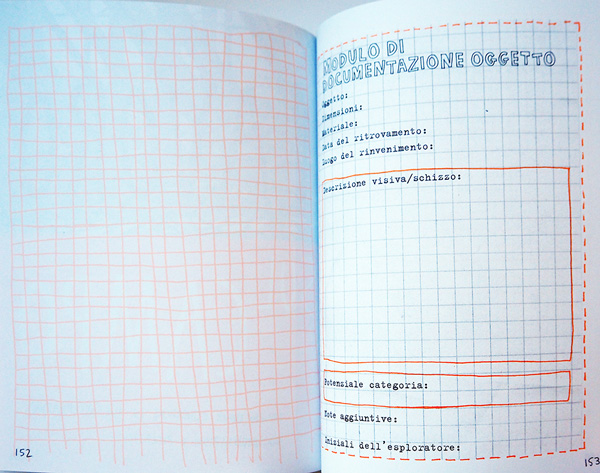 152
MODULO DI
DOCUMENTAZIONE OGGETTO
Oggetto:
Dimensioni:
Materiale:
Data del ritrovamento:
Luogo del rinvenimento:
Descrizione visiva/schizzo:
Potenziale categoria:
Note aggiuntive:
Iniziali dell'esploratore:
153